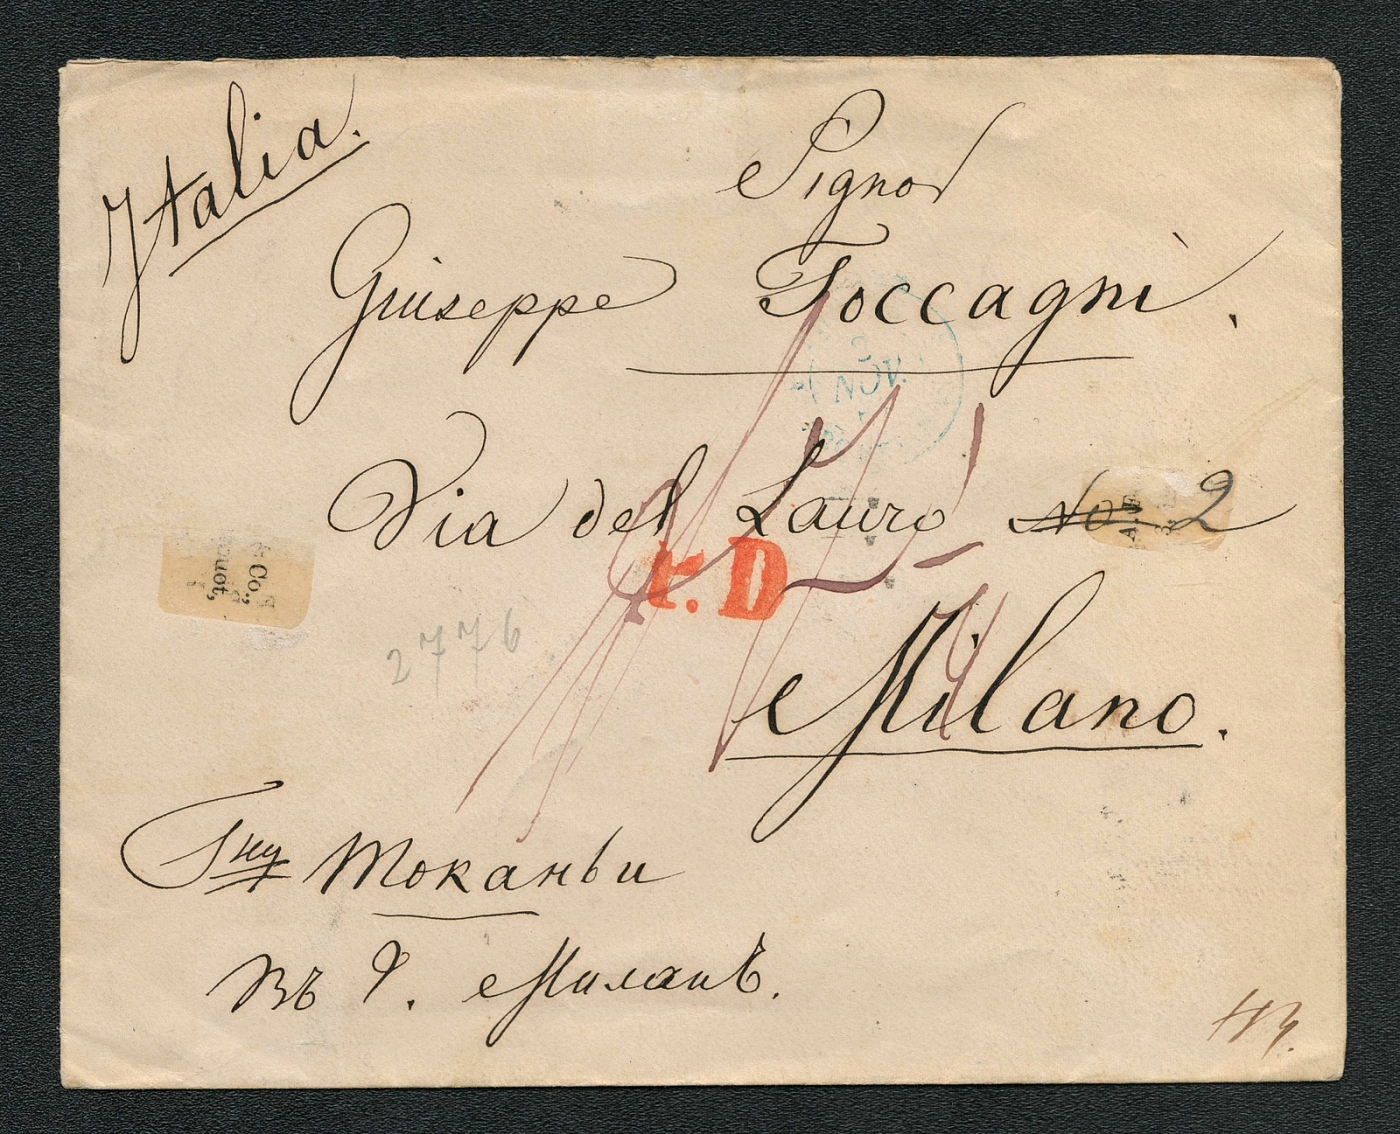 Italia.
Signor
Giuseppe Toccagni.
3
NOV.
Via del Lauro No 2
& Co.,
P. D
2776
Milano.
Гну Токаньи
въ г. Миланѣ.